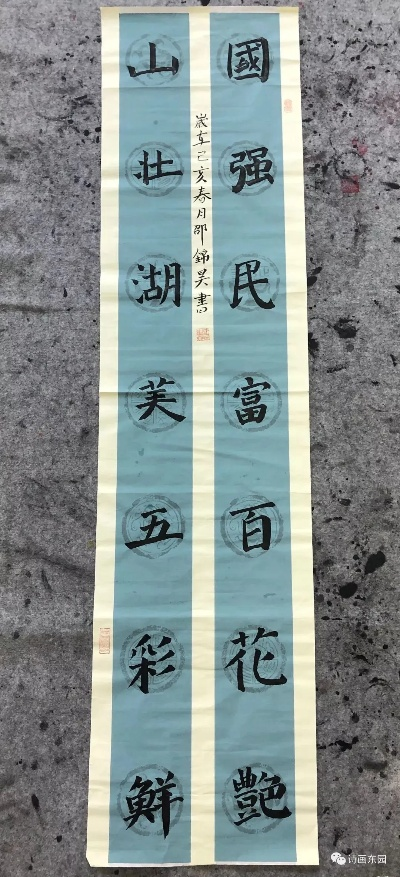 國强民富百花艷
山壮湖美五彩鮮
岁在己亥春月邵錦昊書
诗画东园